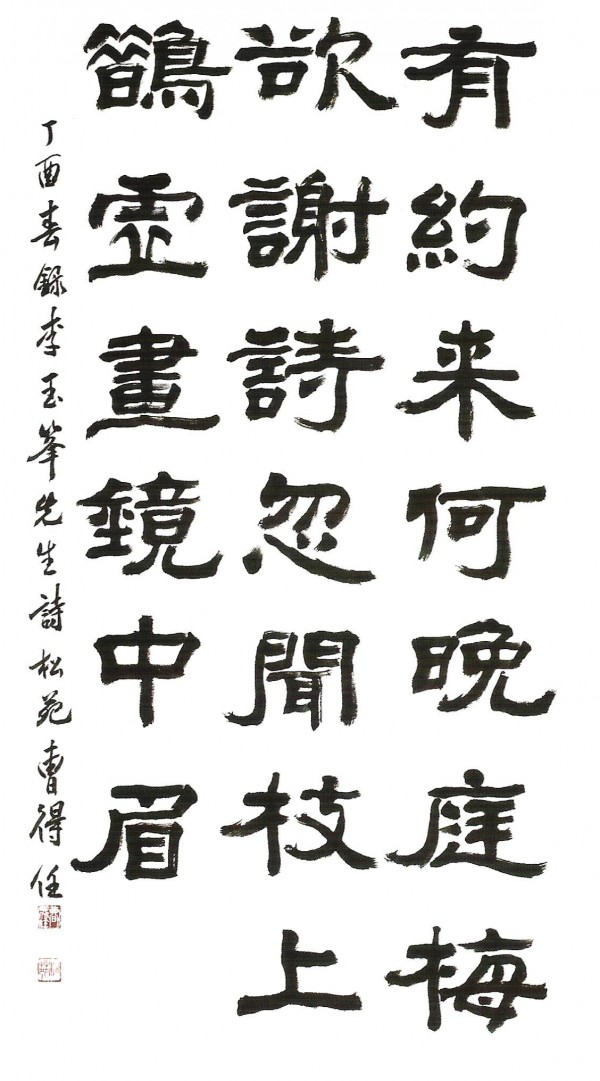 有約来何晚庭梅
欲謝詩忽聞枝上
鵲虛畫鏡中眉
丁酉春錄李玉峯先生詩松苑曺得任